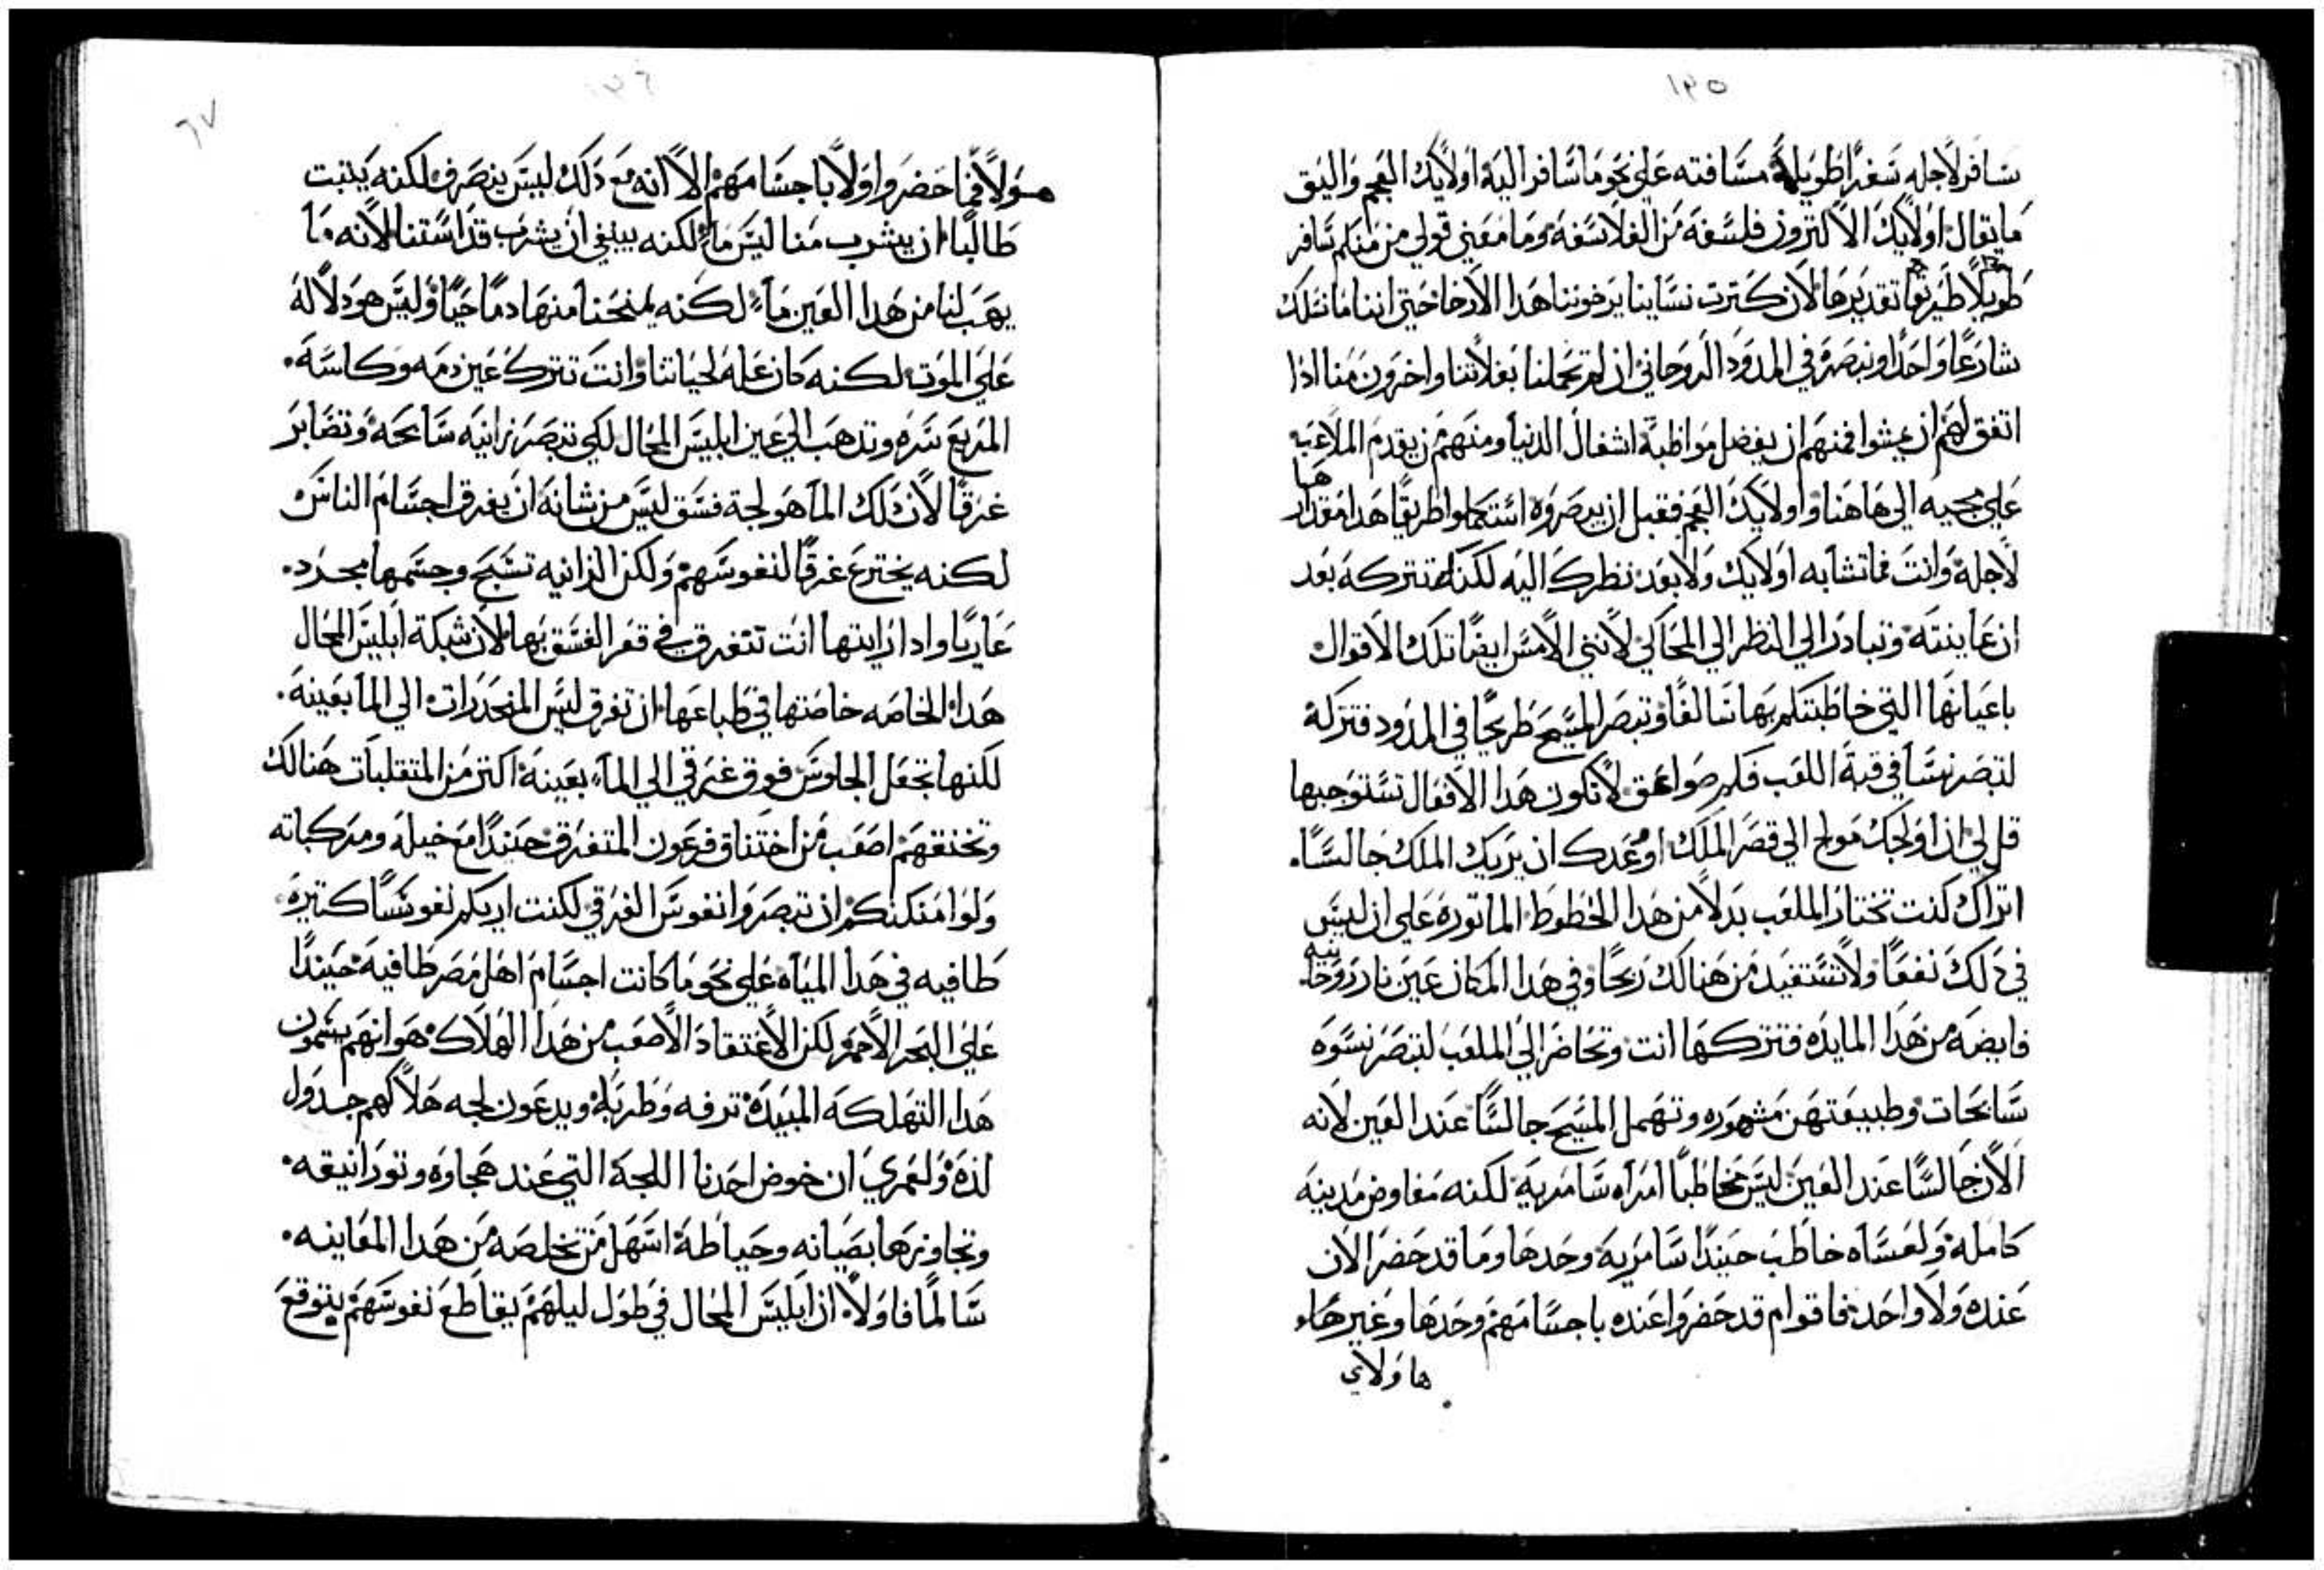 ١٣٥
سافر لاجله سفرًا طويلة مسافته على نحو ما سافر اليه اولايك العجم واليق
ما يقال اولايك الاكترون فلسفه من الفلاسفه وما معني قولي من منكم سافر
طويلًا طريقًا تقديرها لان كترت نساينا يرخوننا هدا الارخا حتي اننا ما نسلك
شارعًا واحدًا ونبصره في المدود الروحاني ان لم تحملنا بغلاتنا واخرون منا ادا
اتفق لهم ان يمشوا فمنهم ان يفضل مواظبة اشغال الدنيا ومنهم من يقدم الملاعبه
على مجيه الي هاهنا واولايك العجم فقبل ان يبصروه استعملوا طريقًا هدا مقدارها
لاجله وانت فما تشابه اولايك ولا بعد نظرك اليه لكنك تتركه بعد
ان عاينته وتبادر الي النظر الي المحاكي لانني الامس ايضًا تلك الاقوال
باعيانها التي خاطبتكم بها سالفًا وتبصر المسيح طريحًا في المدود فتتركه
لتبصر نسا في قبة اللعب فكم صواعق لا تكون هدا الافعال تستوجبها
قل لي ادا اولجك مولج الي قصر الملك او وعدك ان يريك الملك جالسًا.
اتراك كنت تختار الملعب بدلًا من هدا الحظوظ الماتوره على ان ليس
في دلك نفعًا ولا تستفيد من هنالك ربحًا وفي هدا المكان عين نار روحانيه
فايضه من هدا المايده فتتركها انت وتحاضر الي الملعب لتبصر نسوه
سابحات وطبيعتهن مشهوره وتهمل المسيح جالسًا عند العين لانه
الان جالسًا عند العين ليس مخاطبًا امراه سامريه لكنه مفاوض مدينه
كامله ولعساه خاطب حينيدًا سامريه وحدها وما قد حضر الان
عنده ولا واحد فاقوام قد حضروا عنده باجسامهم وحدها وغير هاء
هاولاي
١٣٦
٦٧
هولاء فما حضروا ولا باجسامهم الا انه مع دلك ليس ينصرف لكنه يتبت
طالبًا ان يشرب منا ليس ماء لكنه ينبغي ان يشرب قداستنا لانه ما
يهب لنا من هدا العين ماء لكنه يمنحنا منها دمًا حيًا وليس هو دلاله
على الموت لكنه كان عله لحياتنا وانت تترك عين دمه وكاسه.
المريع سره وتدهب الي عين ابليس المحال لكي تبصر زانيه سابحه وتصابر
غرقًا لان تلك الما هو لجة فسق ليس من شانه ان يغرق اجسام الناس
لكنه يخترع غرقًا لنفوسهم ولكن الزانيه تسبح وجسمها مجرد.
عاريًا وادا رايتها انت تتغرق في قعر الفسق بها لان شبكة ابليس المحال
هدا الخاصه خاصتها في طباعها ان تغرق ليس المنحدرات الي الما بعينه.
لكنها تجعل الجلوس فوق غرقي الي الماء بعينه اكتر من المتقلبات هنالك
وتخنقهم اصعب من اختناق فرعون المتغرق حينيدًا مع خيله ومركباته
ولو امكنكم ان تبصروا نفوس الغرقي لكنت اريكم نفوسًا كتيره
طافيه في هدا المياه على نحو ما كانت اجسام اهل مصر طافيه حينيدًا
على البحر الاحمر لكن الاعتقاد الاصعب من هدا الهلاك هو انهم يسمون
هدا التهلكه المبيده ترفه وطربله ويدعون لجه هلاكهم جدول
لده ولعمري ان خوض احدنا اللجه التي عند هجاوه وتورانيقه.
وتجاوزها بصيانه وحياطة اسهل من تخلصه من هدا المعاينه.
سالمًا فاولًا ان ابليس المحال في طول ليلهم يقاطع نفوسهم بتوقع